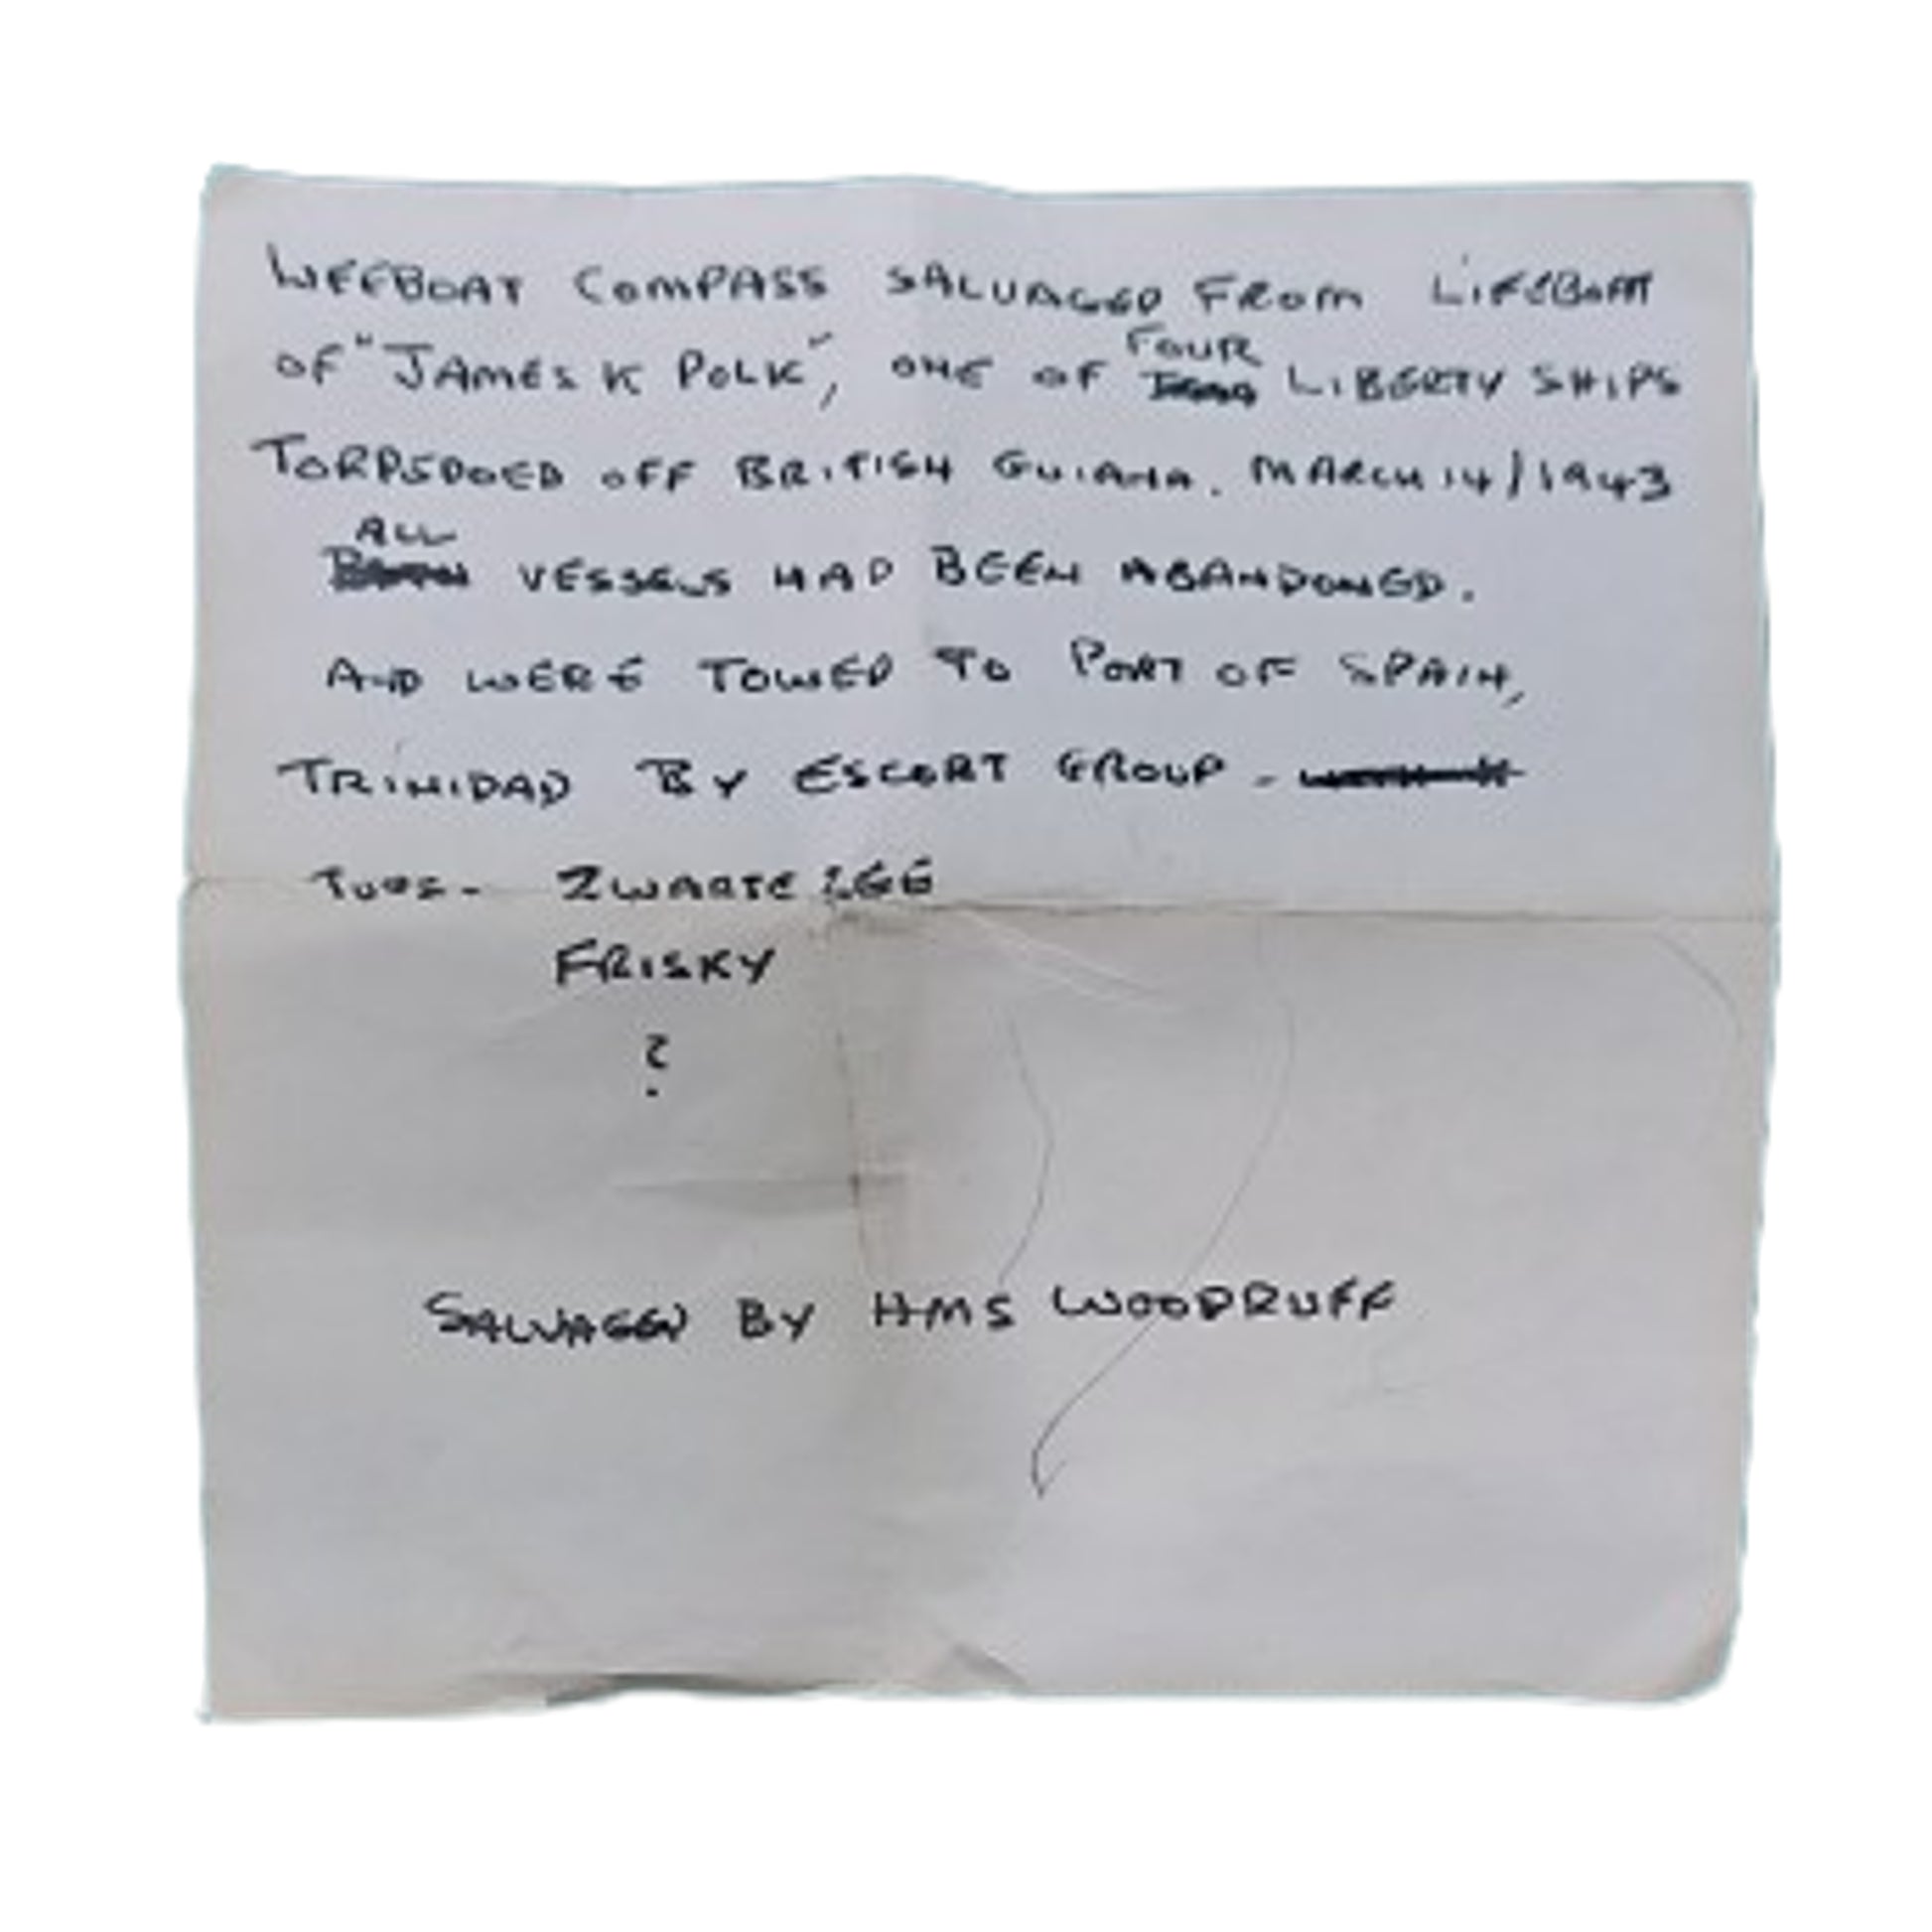 LIFEBOAT COMPASS SALVAGED FROM LIFEBOAT
OF "JAMES K POLK", ONE OF FOUR LIBERTY SHIPS
TORPEDOED OFF BRITISH GUIANA. MARCH 14/1943
ALL VESSELS HAD BEEN ABANDONED.
AND WERE TOWED TO PORT OF SPAIN,
TRINIDAD BY ESCORT GROUP -
TUGS - ZWARTE ZEE
FRISKY
?
SALVAGED BY HMS WOODRUFF